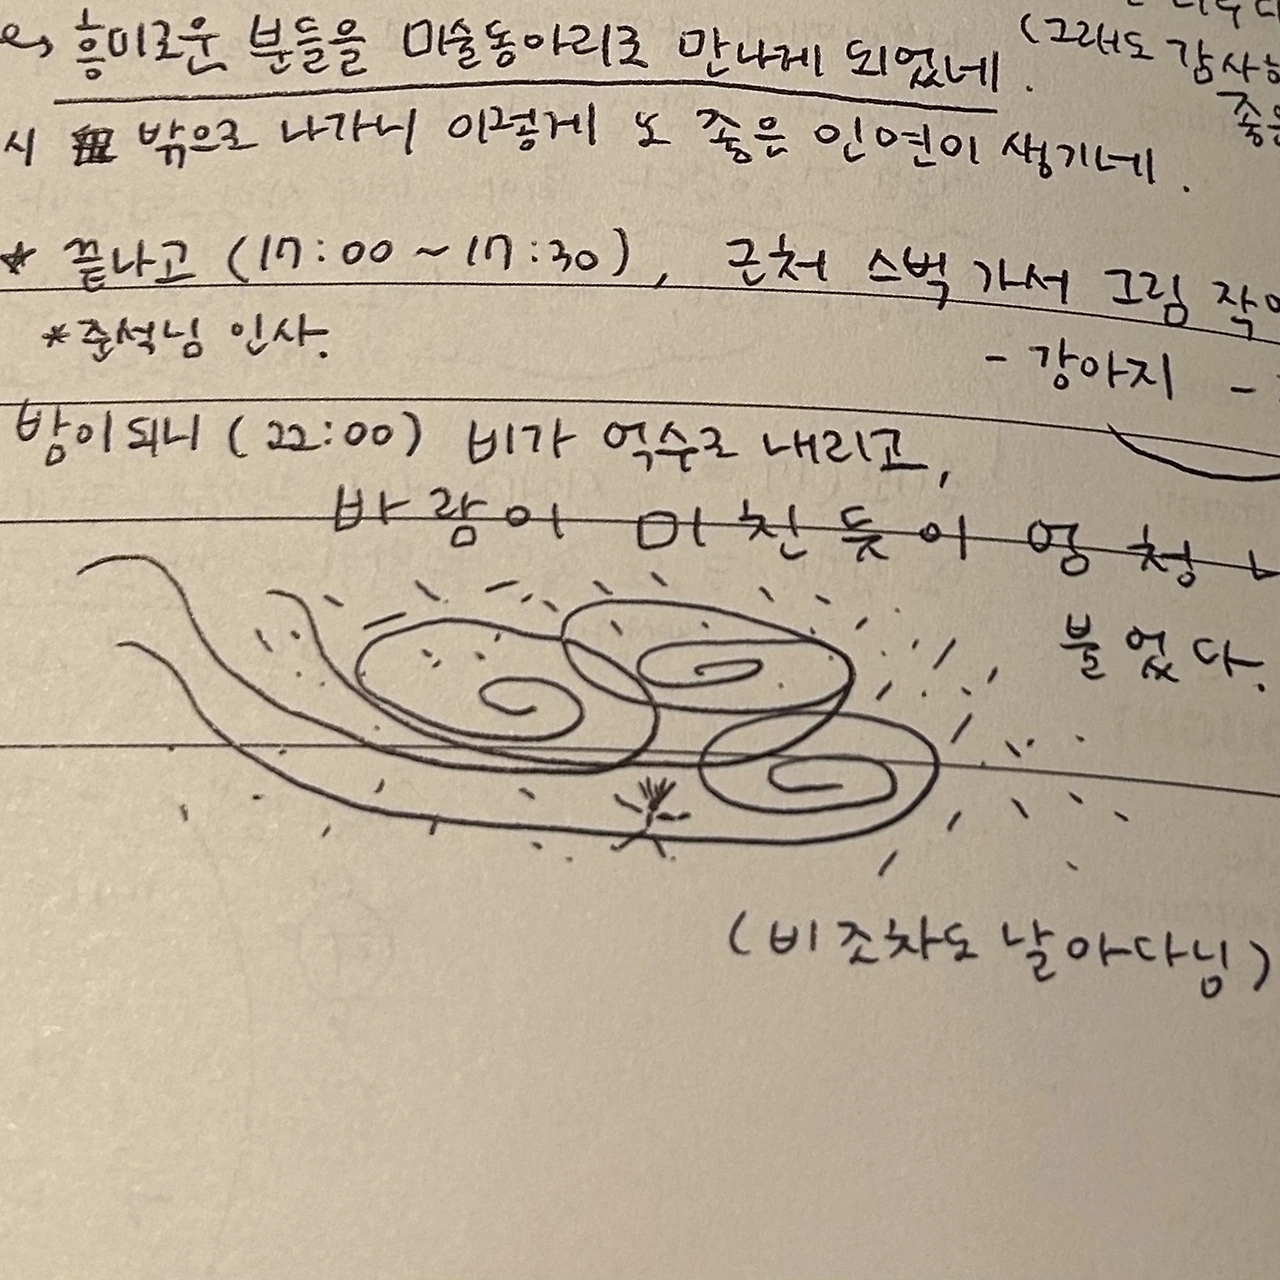 흥미로운 분들을 미술동아리로 만나게 되었네.
(그래도 감사
좋은
시 밖으로 나가니 이렇게 또 좋은 인연이 생기네.
* 끝나고 (17:00 ~ 17:30), 근처 스벅 가서 그림
* 준석님 인사.
- 강아지 -
밤이 되니 (22:00) 비가 억수로 내리고,
바람이 미친듯이 엉청
불었다.
(비조차도 날아다님)